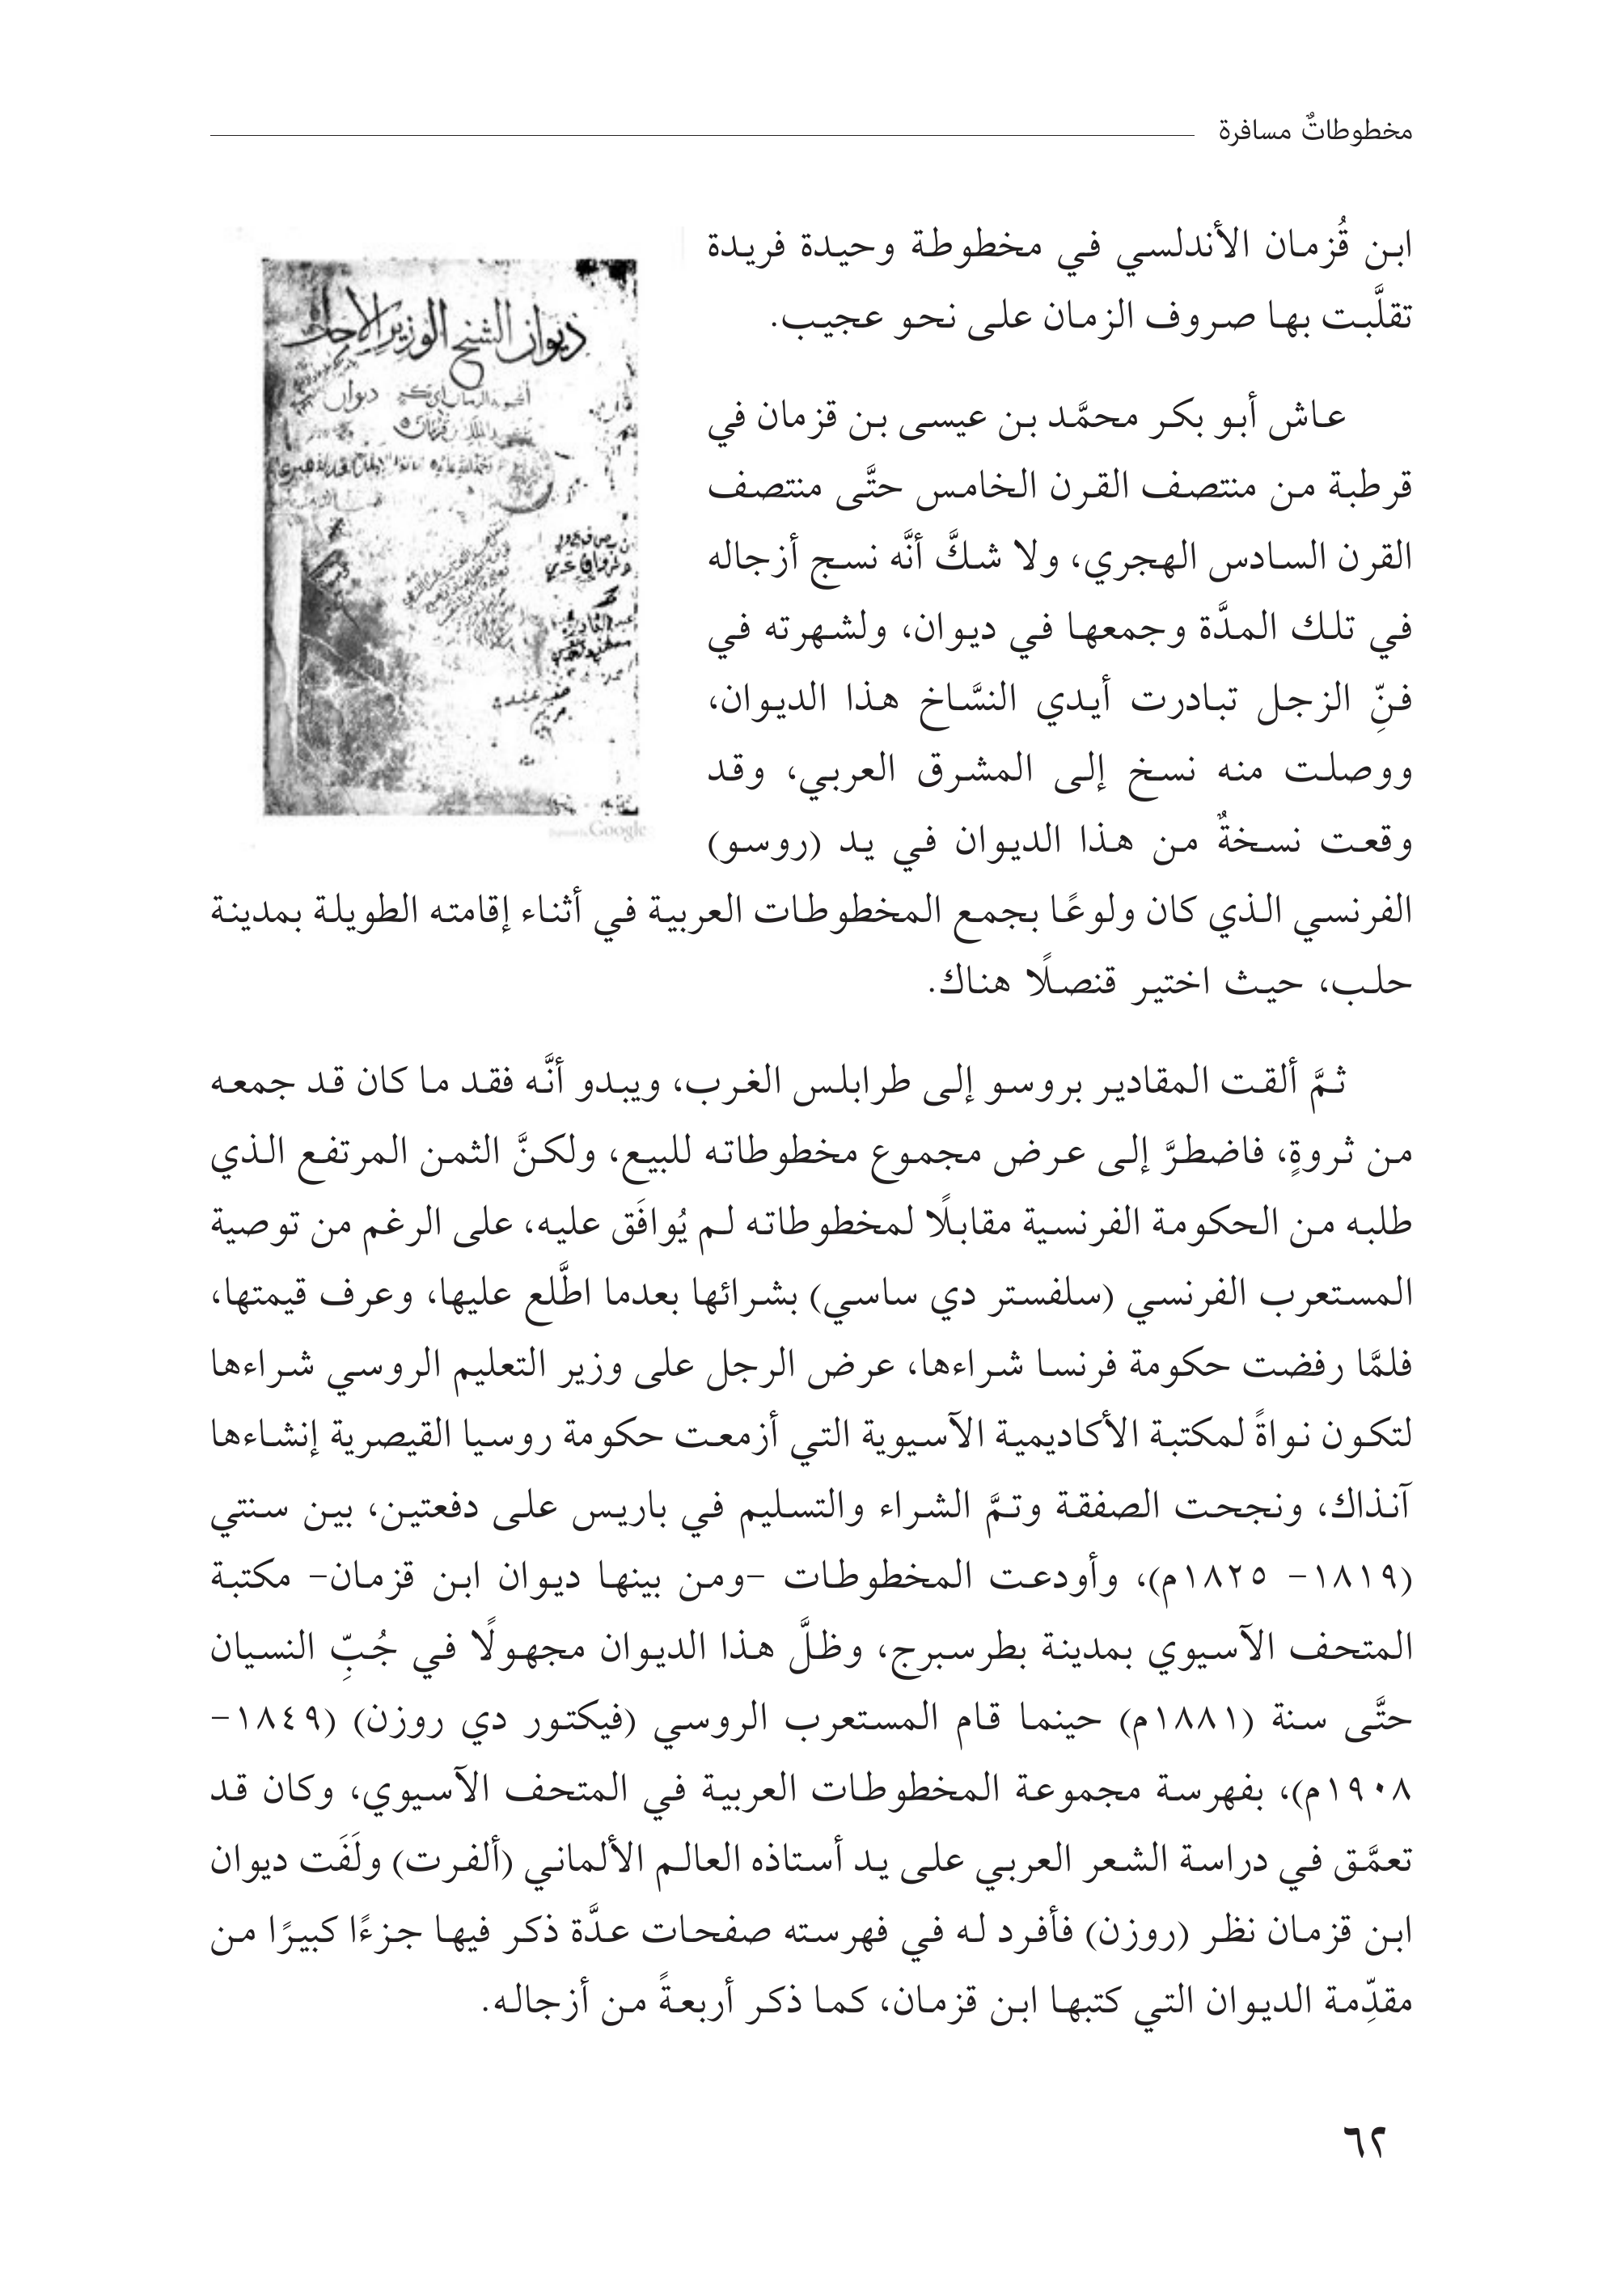 مخطوطاتٌ مسافرة
ابن قُزمان الأندلسي في مخطوطة وحيدة فريدة
تقلَّبت بها صروف الزمان على نحو عجيب.
ديوان الشيخ الوزير الاجل
ديوان
Google
عاش أبو بكر محمَّد بن عيسى بن قزمان في
قرطبة من منتصف القرن الخامس حتَّى منتصف
القرن السادس الهجري، ولا شكَّ أنَّه نسج أزجاله
في تلك المدَّة وجمعها في ديوان، ولشهرته في
فنِّ الزجل تبادرت أيدي النسَّاخ هذا الديوان،
ووصلت منه نسخ إلى المشرق العربي، وقد
وقعت نسخةٌ من هذا الديوان في يد (روسو)
الفرنسي الذي كان ولوعًا بجمع المخطوطات العربية في أثناء إقامته الطويلة بمدينة
حلب، حيث اختير قنصلًا هناك.
ثمَّ ألقت المقادير بروسو إلى طرابلس الغرب، ويبدو أنَّه فقد ما كان قد جمعه
من ثروةٍ، فاضطرَّ إلى عرض مجموع مخطوطاته للبيع، ولكنَّ الثمن المرتفع الذي
طلبه من الحكومة الفرنسية مقابلًا لمخطوطاته لم يُوافَق عليه، على الرغم من توصية
المستعرب الفرنسي (سلفستر دي ساسي) بشرائها بعدما اطَّلع عليها، وعرف قيمتها،
فلمَّا رفضت حكومة فرنسا شراءها، عرض الرجل على وزير التعليم الروسي شراءها
لتكون نواةً لمكتبة الأكاديمية الآسيوية التي أزمعت حكومة روسيا القيصرية إنشاءها
آنذاك، ونجحت الصفقة وتمَّ الشراء والتسليم في باريس على دفعتين، بين سنتي
(١٨١٩- ١٨٢٥م)، وأودعت المخطوطات -ومن بينها ديوان ابن قزمان- مكتبة
المتحف الآسيوي بمدينة بطرسبرج، وظلَّ هذا الديوان مجهولًا في جُبِّ النسيان
حتَّى سنة (١٨٨١م) حينما قام المستعرب الروسي (فيكتور دي روزن) (١٨٤٩-
١٩٠٨م)، بفهرسة مجموعة المخطوطات العربية في المتحف الآسيوي، وكان قد
تعمَّق في دراسة الشعر العربي على يد أستاذه العالم الألماني (ألفرت) ولَفَت ديوان
ابن قزمان نظر (روزن) فأفرد له في فهرسته صفحات عدَّة ذكر فيها جزءًا كبيرًا من
مقدِّمة الديوان التي كتبها ابن قزمان، كما ذكر أربعةً من أزجاله.
٦٢